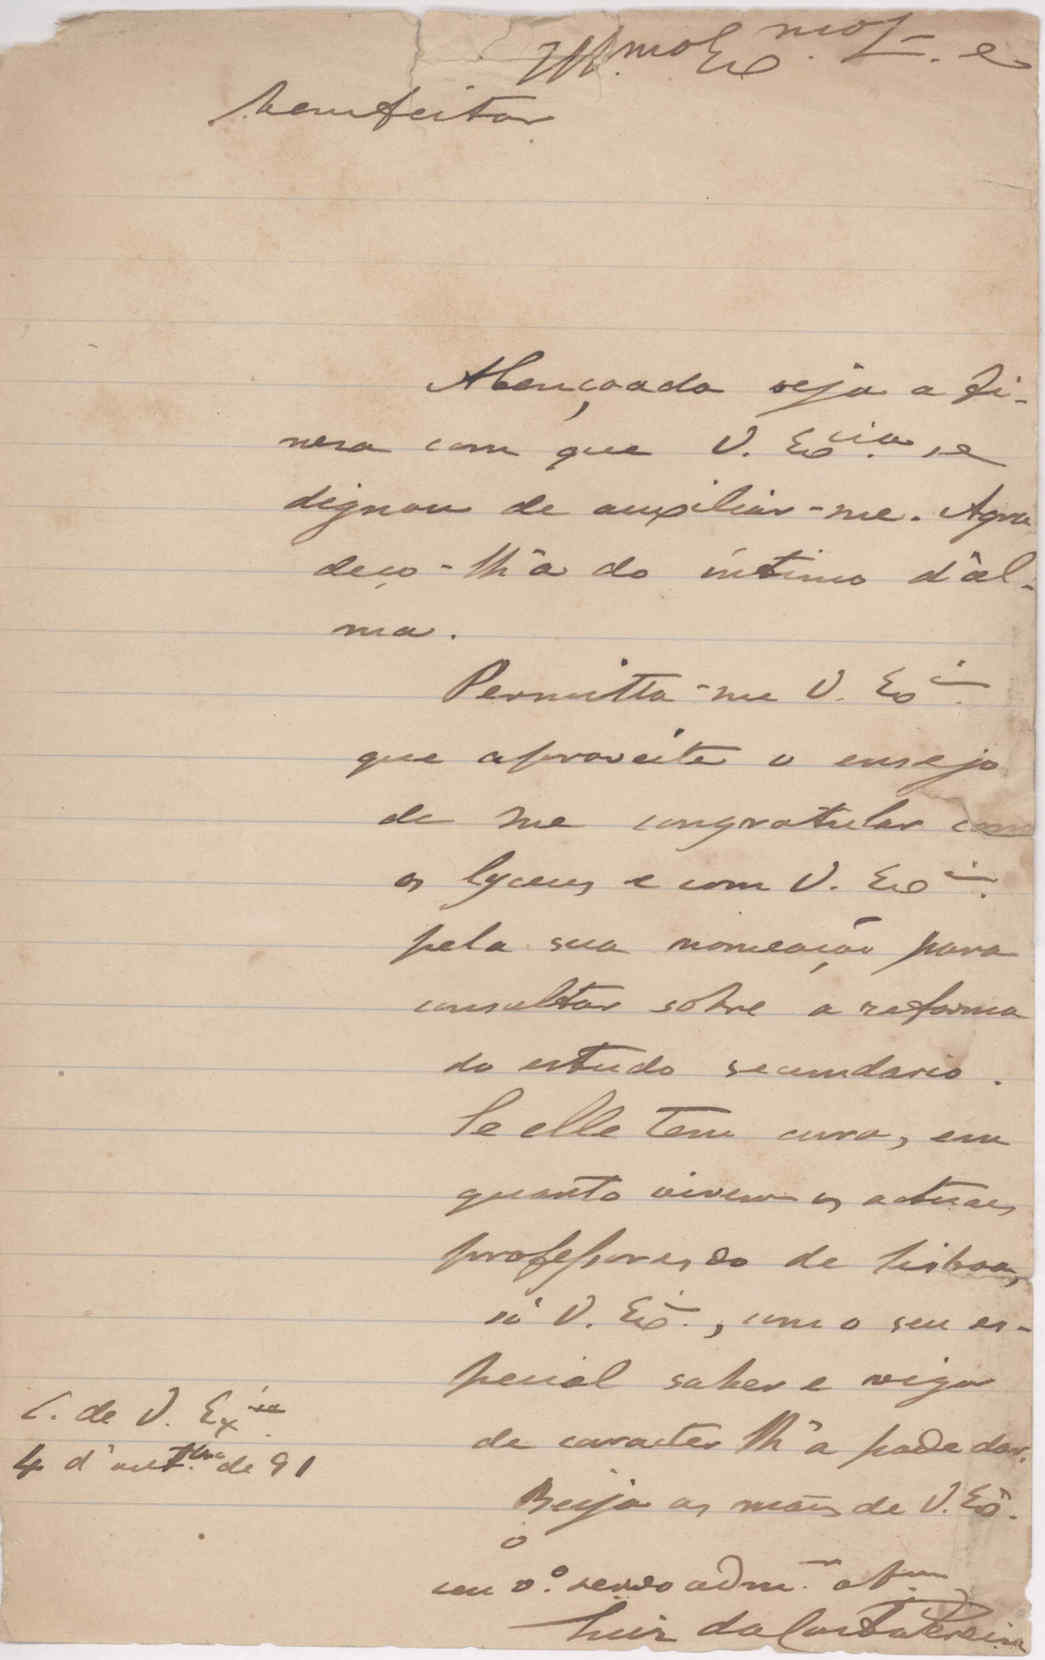 Ill.mo Ex.mo Sr. e
bemfeitor
Abençoada seja a fi-
neza com que V. Ex.cia se
dignou de auxiliar-me. Agra
deço-lh'a do íntimo d'al-
ma.
Permitta-me V. Ex.cia
que aproveite o ensejo
de me congratular com
os lyceus e com V. Ex.cia
pela sua nomeação para
consultar sobre a reforma
do estudo secundario.
Se elle tem cura, em
quanto vivem os actuaes
professores do de Lisboa,
só V. Ex.a, com o seu es-
pecial saber e vigor
de caracter lh'a pode dar.
Beija as mãos de V. Ex.a
o
C. de V. Ex.cia
4 d'out.bro de 91
seu v.o servo adm.
Luiz da Costa Pereira